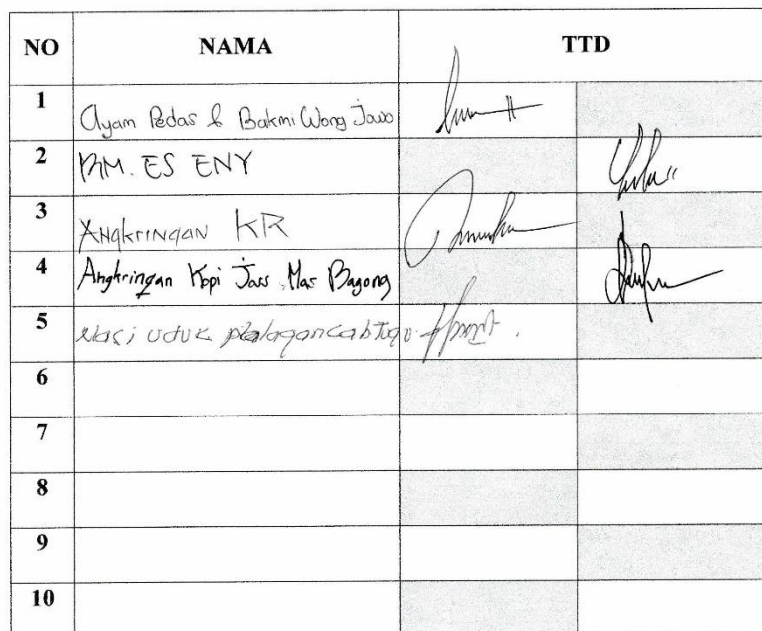 NO NAMA TTD
1 Ayam Pedas & Bakmi Wong Jawo
2 RM. ES ENY
3 Angkringan KR
4 Angkringan Kopi Joss Mas Bagong
5 Nasi uduk
6
7
8
9
10